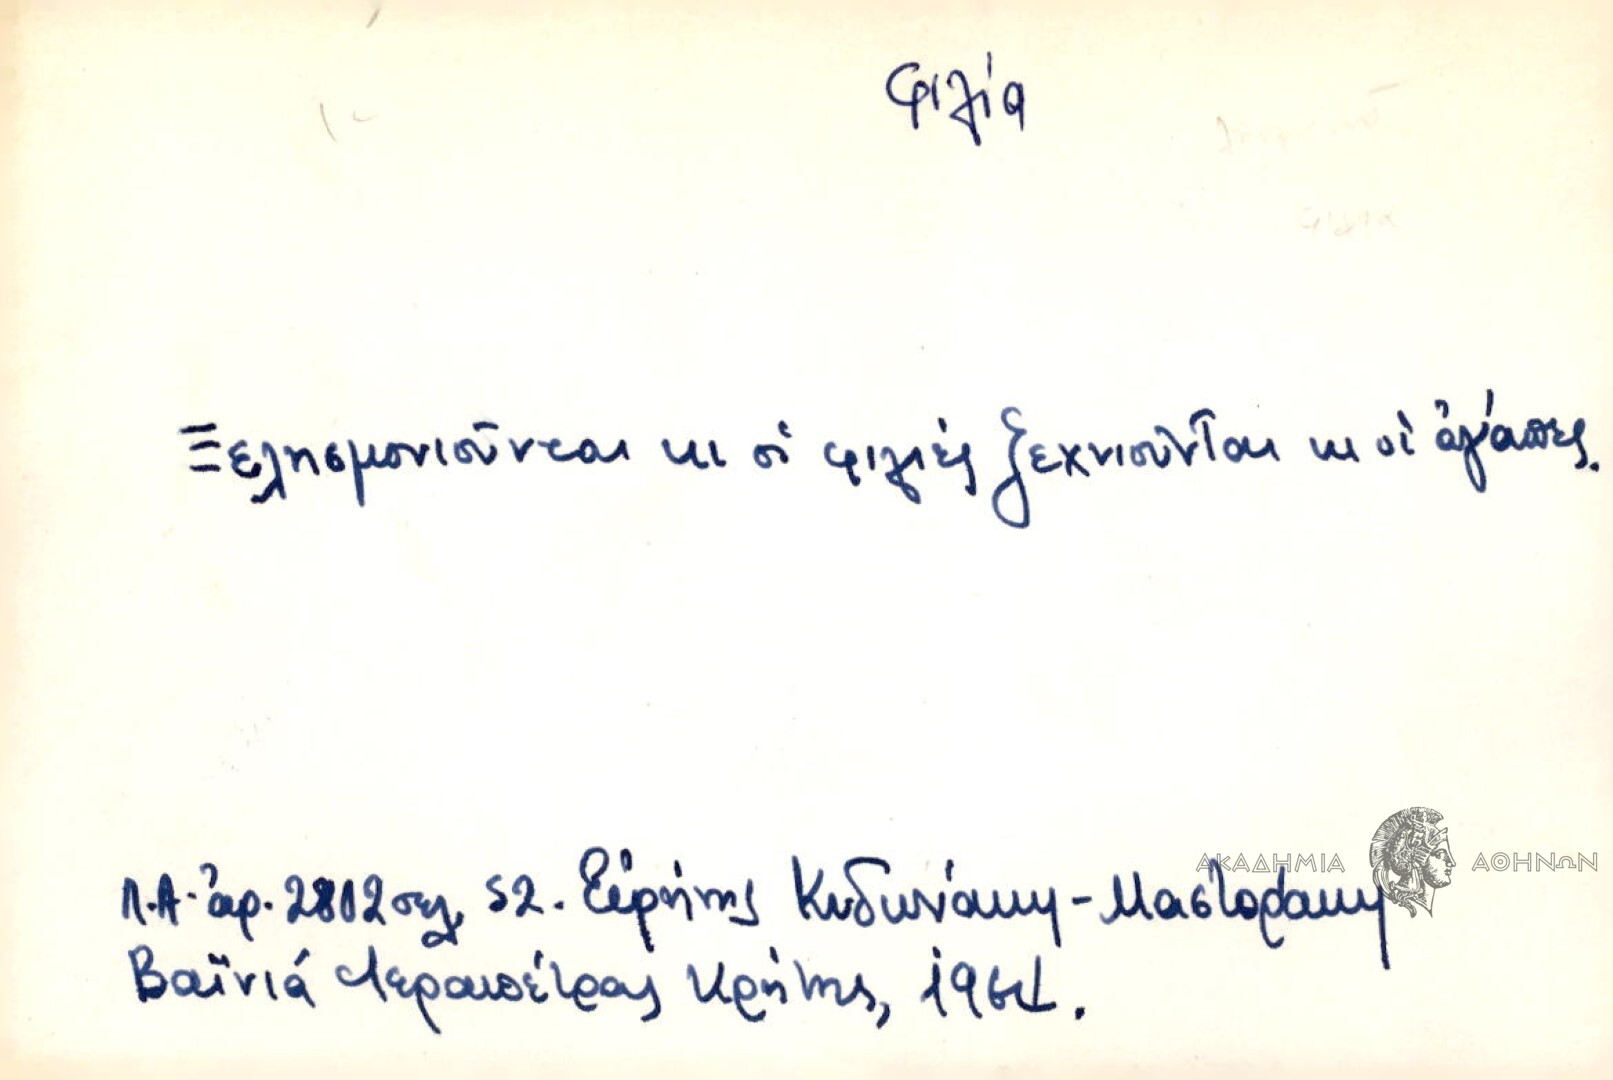 φιλία
Ξελησμονιοῦνται κι οἱ φιλιές ξεχνιοῦνται κι οἱ ἀγάπες.
Λ.Α. ἀρ. 2812 σελ. 52. Εἰρήνης Κυδωνάκη - Μαστοράκη
Βαϊνιά Ἱεραπέτρας Κρήτης, 1964.
ΑΚΑΔΗΜΙΑ ΑΘΗΝΩΝ